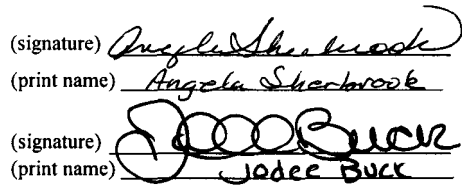 (signature) Angela Sherbrook
(print name) Angela Sherbrook
(signature) Jodee Buck
(print name) Jodee Buck